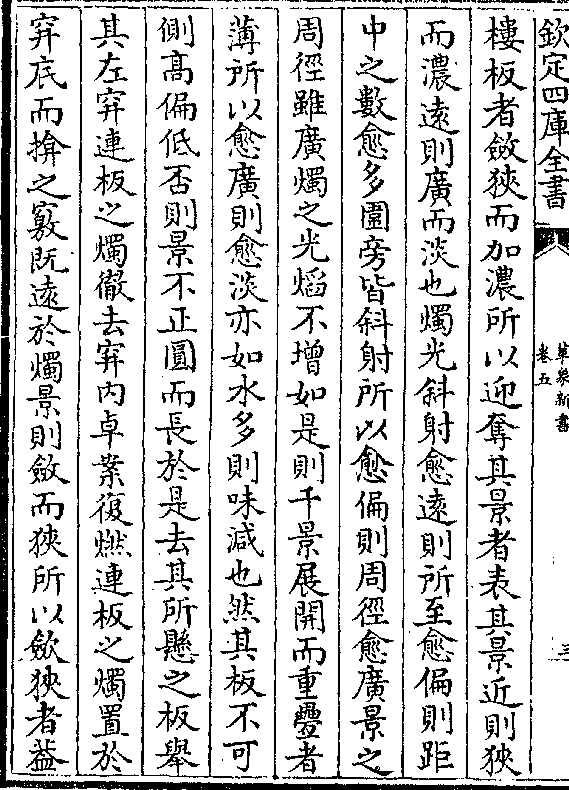 欽定四庫全書
革象新書
卷五
三
樓板者斂狹而加濃所以迎奪其景者表其景近則狹
而濃遠則廣而淡也燭光斜射愈遠則所至愈偏則距
中之數愈多圍旁皆斜射所以愈偏則周徑愈廣景之
周徑雖廣燭之光熖不增如是則千景展開而重疊者
薄所以愈廣則愈淡亦如水多則味減也然其板不可
側高偏低否則景不正圓而長於是去其所懸之板舉
其左穽連板之燭徹去穽内卓案復燃連板之燭置於
穽底而揜之竅既遠於燭景則斂而狹所以斂狹者葢